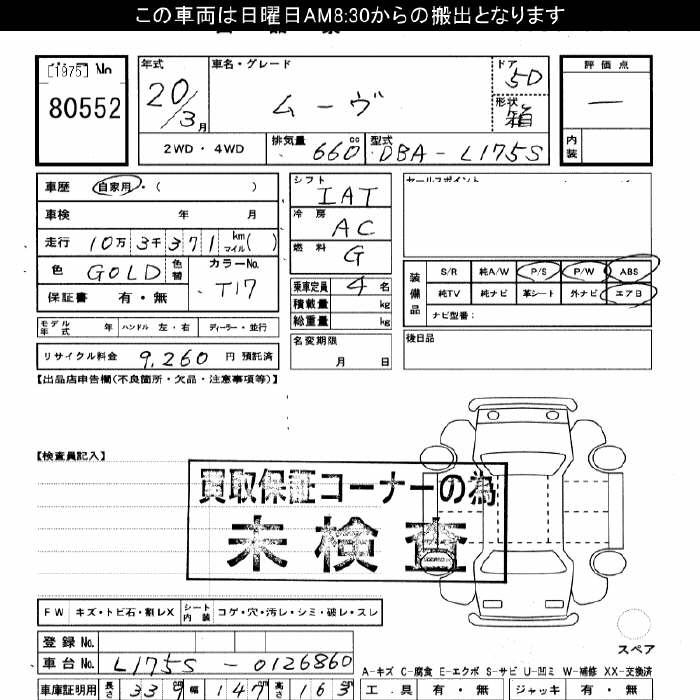 この車両は日曜日AM8:30からの搬出となります
[1975] No
80552
年式 車名・グレード ドア 評価点
20/3月 ムーヴ 5D 形状 箱 —
2WD・4WD 排気量 660cc 型式 DBA-L175S 内装
車歴 自家用・( )
車検 年 月
走行 10万3千371 km マイル( )
色 GOLD 色替 カラーNo. T17
保証書 有・無
モデル年式 年 ハンドル 左・右 ディーラー・並行
リサイクル料金 9,260 円 預託済
シフト IAT
冷房 AC
燃料 G
乗車定員 4名
積載量 kg
総重量 kg
名変期限 月 日
セールスポイント
装備品 S/R 純A/W P/S P/W ABS
純TV 純ナビ 革シート 外ナビ エアB
ナビ型番:
後日品
【出品店申告欄(不良箇所・欠品・注意事項等)】
【検査員記入】
買取保証コーナーの為
未検査
FW キズ・トビ石・割レX シート内装 コゲ・穴・汚レ・シミ・破レ・スレ
スペア
登録No.
車台No. L175S-0126860
A-キズ C-腐食 E-エクボ S-サビ U-凹ミ W-補修 XX-交換済
車庫証明用 長さ 339 幅 147 高さ 163 工具 有・無 ジャッキ 有・無